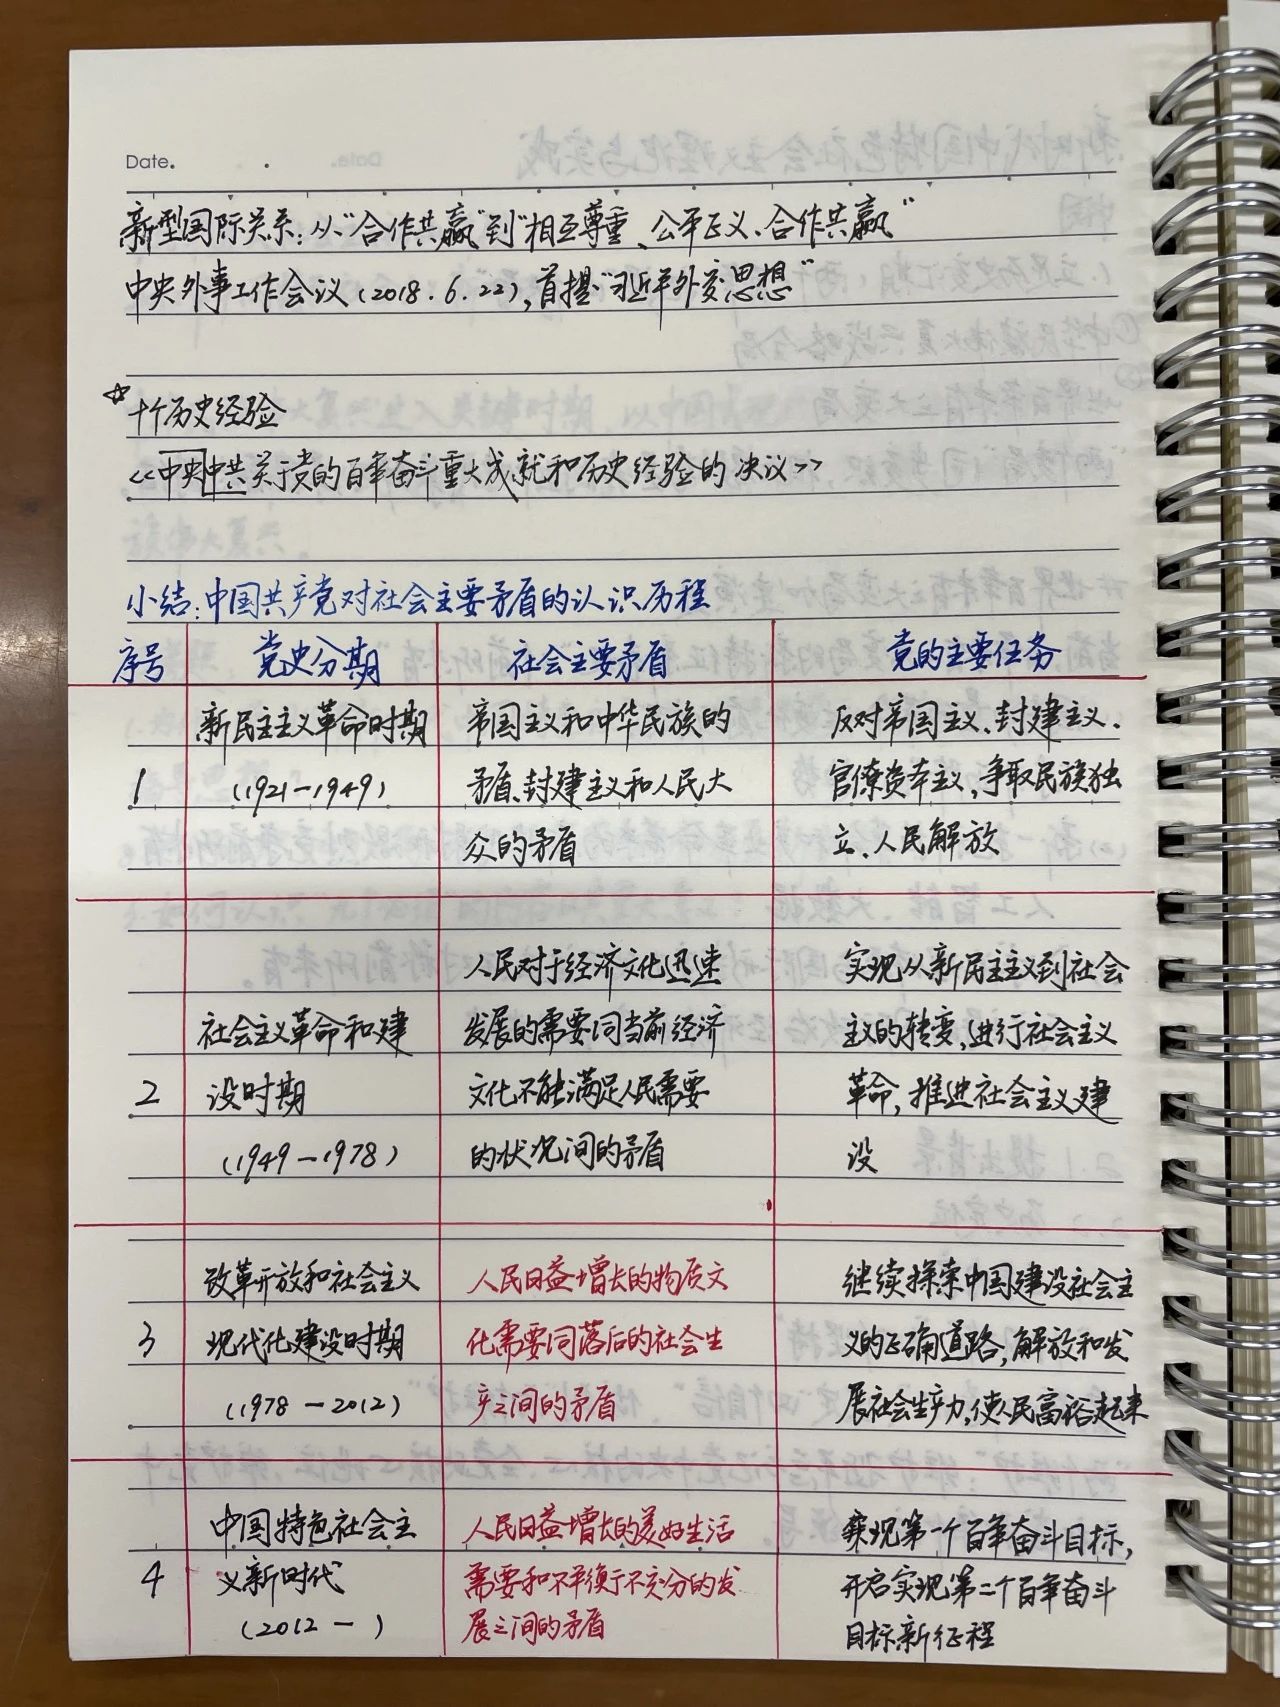 Date.
新型国际关系：从“合作共赢”到“相互尊重、公平正义、合作共赢”
中央外事工作会议（2018.6.22），首提“习近平外交思想”
☆十个历史经验
<<中央中共关于党的百年奋斗重大成就和历史经验的决议>>
小结：中国共产党对社会主要矛盾的认识历程
序号 党史分期 社会主要矛盾 党的主要任务
新民主主义革命时期 帝国主义和中华民族的 反对帝国主义、封建主义、
1 （1921—1949） 矛盾、封建主义和人民大 官僚资本主义，争取民族独
众的矛盾 立、人民解放
人民对于经济文化迅速 实现从新民主主义到社会
社会主义革命和建 发展的需要同当前经济 主义的转变，进行社会主义
2 设时期 文化不能满足人民需要 革命，推进社会主义建
（1949—1978） 的状况间的矛盾 设
改革开放和社会主义 人民日益增长的物质文 继续探索中国建设社会主
3 现代化建设时期 化需要同落后的社会生 义的正确道路，解放和发
（1978—2012） 产之间的矛盾 展社会生产力，使人民富裕起来
中国特色社会主 人民日益增长的美好生活 实现第一个百年奋斗目标，
4 义新时代 需要和不平衡不充分的发 开启实现第二个百年奋斗
（2012— ） 展之间的矛盾 目标新征程